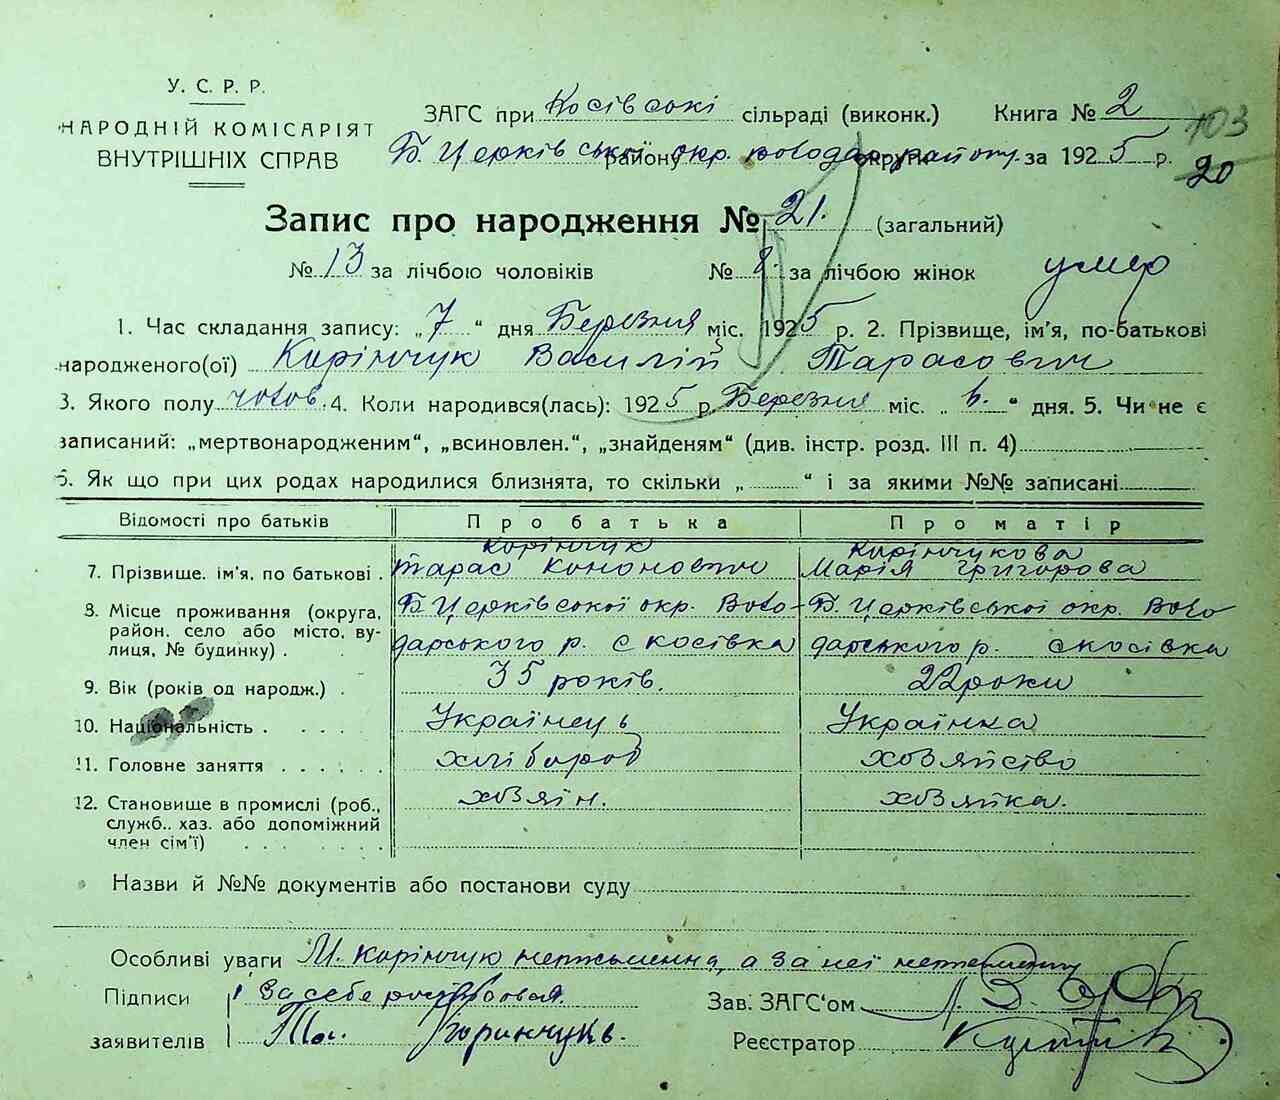 У. С. Р. Р.
НАРОДНІЙ КОМІСАРІЯТ
ВНУТРІШНІХ СПРАВ
ЗАГС при Косівські сільраді (виконк.) Книга № 2
103
Б. Церківської окр. Володар. району. району округи за 1925 р.
20
Запис про народження № 21. (загальний)
№ 13 за лічбою чоловіків № 8. за лічбою жінок умер
1. Час складання запису: „7“ дня Березня міс. 1925 р. 2. Прізвище, ім'я, по-батькові
народженого(ої) Корінчук Василій Тарасович
3. Якого полу чолов. 4. Коли народився(лась): 1925 р. Березня міс. „6.“ дня. 5. Чи не є
записаний: „мертвонародженим“, „всиновлен.“, „знайденям“ (див. інстр. розд. III п. 4)
6. Як що при цих родах народилися близнята, то скільки „ “ і за якими №№ записані
Відомості про батьків Про батька Про матір
Корінчук Корінчукова
7. Прізвище, ім'я, по батькові . Тарас Кононович Марія Григорова
8. Місце проживання (округа, Б. Церківської окр. Воло- Б. Церківської окр. Воло
район, село або місто, ву- дарського р. с косівка дарського р. с косівка
лиця, № будинку) . .
9. Вік (років од народж.) . 35 років. 22 роки
10. Національність . . . . . Українець Українка
11. Головне заняття . . . . . . хліبороб хозяйство
12. Становище в промислі (роб., хозяін. хозяйка.
служб., хаз. або допоміжний
член сім'ї) . . . . . . .
Назви й №№ документів або постанови суду
Особливі уваги М. Корінчук неписьменна, а за неї
Підписи За себе
заявителів Корінчукъ.
Зав. ЗАГС'ом
Реєстратор